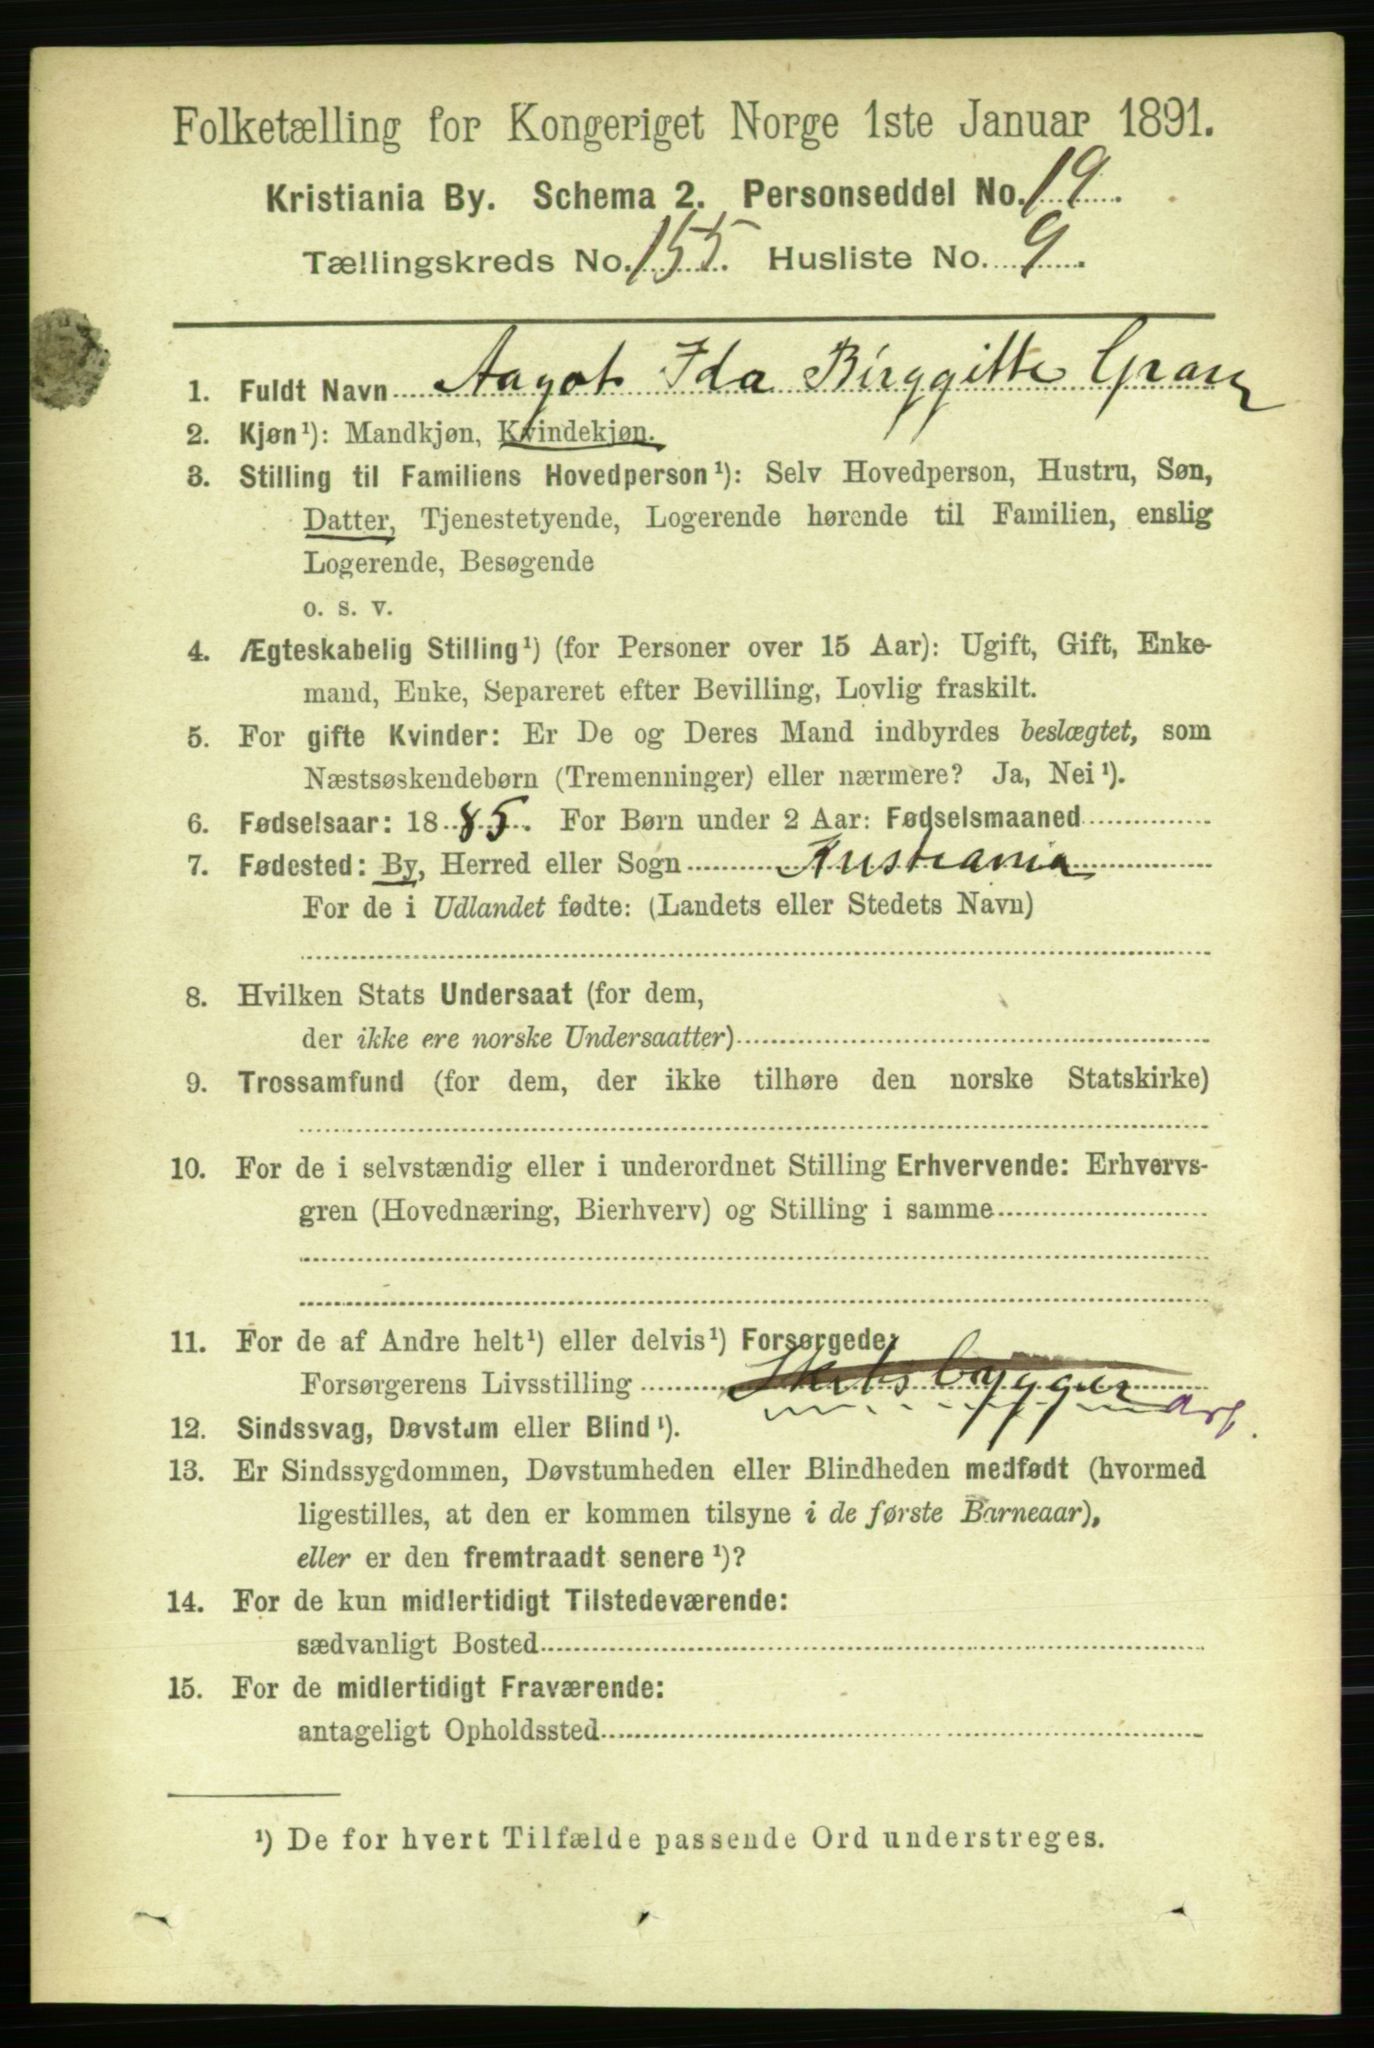 Folketælling for Kongeriget Norge 1ste Januar 1891.
Kristiania By. Schema 2. Personseddel No. 19.
Tællingskreds No. 155. Husliste No. 9.
1. Fuldt Navn Aagot Ida Birggitte Gran
2. Kjøn¹): Mandkjøn, Kvindekjøn.
3. Stilling til Familiens Hovedperson¹): Selv Hovedperson, Hustru, Søn,
Datter, Tjenestetyende, Logerende hørende til Familien, enslig
Logerende, Besøgende
o. s. v.
4. Ægteskabelig Stilling¹) (for Personer over 15 Aar): Ugift, Gift, Enke-
mand, Enke, Separeret efter Bevilling, Lovlig fraskilt.
5. For gifte Kvinder: Er De og Deres Mand indbyrdes beslægtet, som
Næstsøskendebørn (Tremenninger) eller nærmere? Ja, Nei¹).
6. Fødselsaar: 1885. For Børn under 2 Aar: Fødselsmaaned
7. Fødested: By, Herred eller Sogn Kristiania
For de i Udlandet fødte: (Landets eller Stedets Navn)
8. Hvilken Stats Undersaat (for dem,
der ikke ere norske Undersaatter)
9. Trossamfund (for dem, der ikke tilhøre den norske Statskirke)
10. For de i selvstændig eller i underordnet Stilling Erhvervende: Erhvervs-
gren (Hovednæring, Bierhverv) og Stilling i samme
11. For de af Andre helt¹) eller delvis¹) Forsørgede:
Forsørgerens Livsstilling Skibsbygger arb.
12. Sindssvag, Døvstum eller Blind¹).
13. Er Sindssygdommen, Døvstumheden eller Blindheden medfødt (hvormed
ligestilles, at den er kommen tilsyne i de første Barneaar),
eller er den fremtraadt senere¹)?
14. For de kun midlertidigt Tilstedeværende:
sædvanligt Bosted
15. For de midlertidigt Fraværende:
antageligt Opholdssted
¹) De for hvert Tilfælde passende Ord understreges.